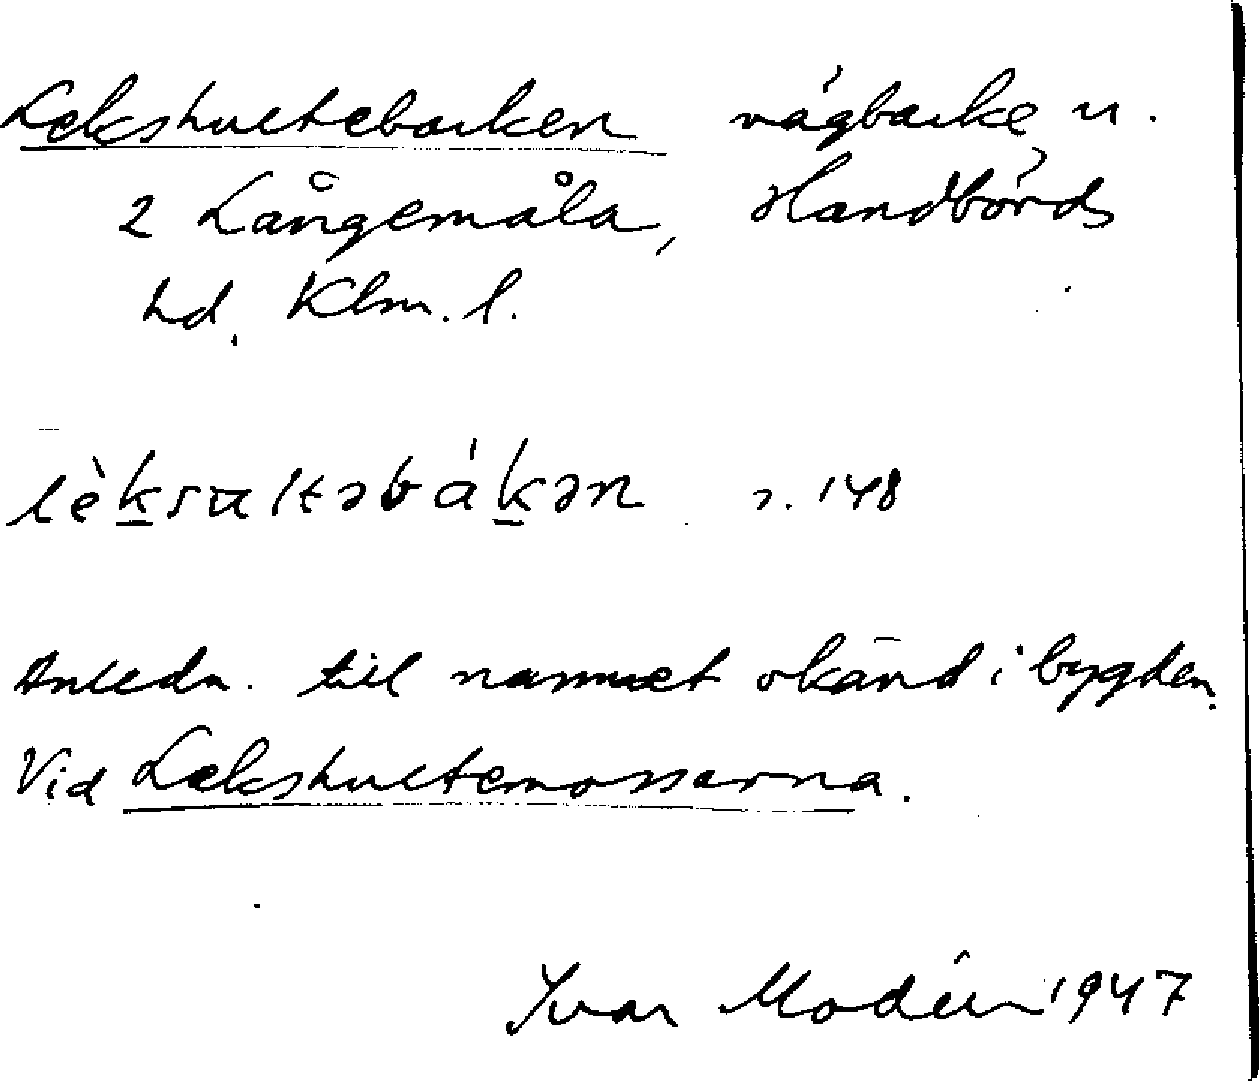 Lekshultebacken vägbacke u.
2 Långemåla, Handbörds
hd. Klm. l.
lèksultəbákən s. 148
Anledn. till namnet okänd i bygden.
Vid Lekshultemossarna.
Ivar Modéer 1947